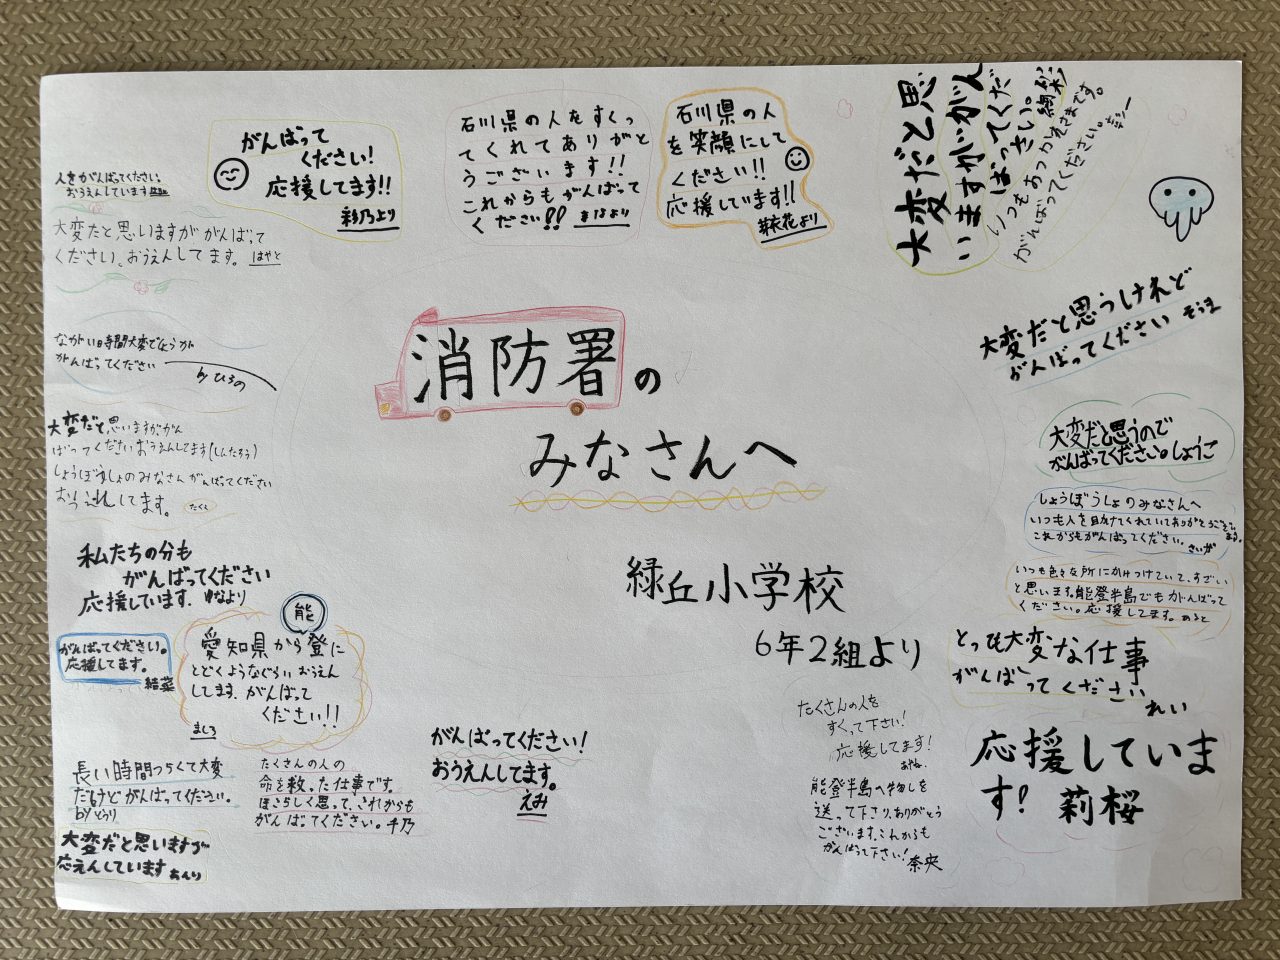 がんばって
ください!
応援してます!!
彩乃より
石川県の人をすくっ
てくれてありがと
うございます!!
これからもがんばって
ください!!
石川県の人
を笑顔にして
ください!!
応援しています!!
芽依花より
大変だと思
いますが、がん
ばってくだ
さい。
いつもおつかれさまです。
がんばってください。
がんばってください。
おうえんしています
大変だと思いますががんばって
ください。おうえんしてます。はやと
大変だと思うけれど
がんばってください そうま
ながい時間大変でしょうが
がんばってください
by ひろの
消防署の
みなさんへ
大変だと思いますががん
ばってくださいおうえんしてます(しんたろう)
しょうぼうしょのみなさんがんばってください
おうえんしてます。
大変だと思うので
がんばってください。しょうご
しょうぼうしょのみなさんへ
いつも人を助けてくれていてありがとうございます。
これからもがんばってください。
私たちの分も
がんばってください
応援しています. ゆなより
緑丘小学校
6年2組より
いつも色々な所にかけつけていて、すごい
と思います。能登半島でもがんばって
ください。応援してます。
がんばってください。
応援してます。
結菜
能
愛知県から登に
とどくようなぐらいおうえん
してます。がんばって
ください!!
ましろ
とっても大変な仕事
がんばってください
れい
たくさんの人を
すくって下さい!
応援してます!
応援していま
す! 莉桜
がんばってください!
おうえんしてます。
えみ
長い時間つらくて大変
だけどがんばってください。
たくさんの人の
命を救った仕事です。
ほこらしく思って、これからも
がんばってください。千乃
能登半島へ物しを
送って下さり、ありがとう
ございます。これからも
がんばって下さい! 奈央
大変だと思いますが
応えんしています